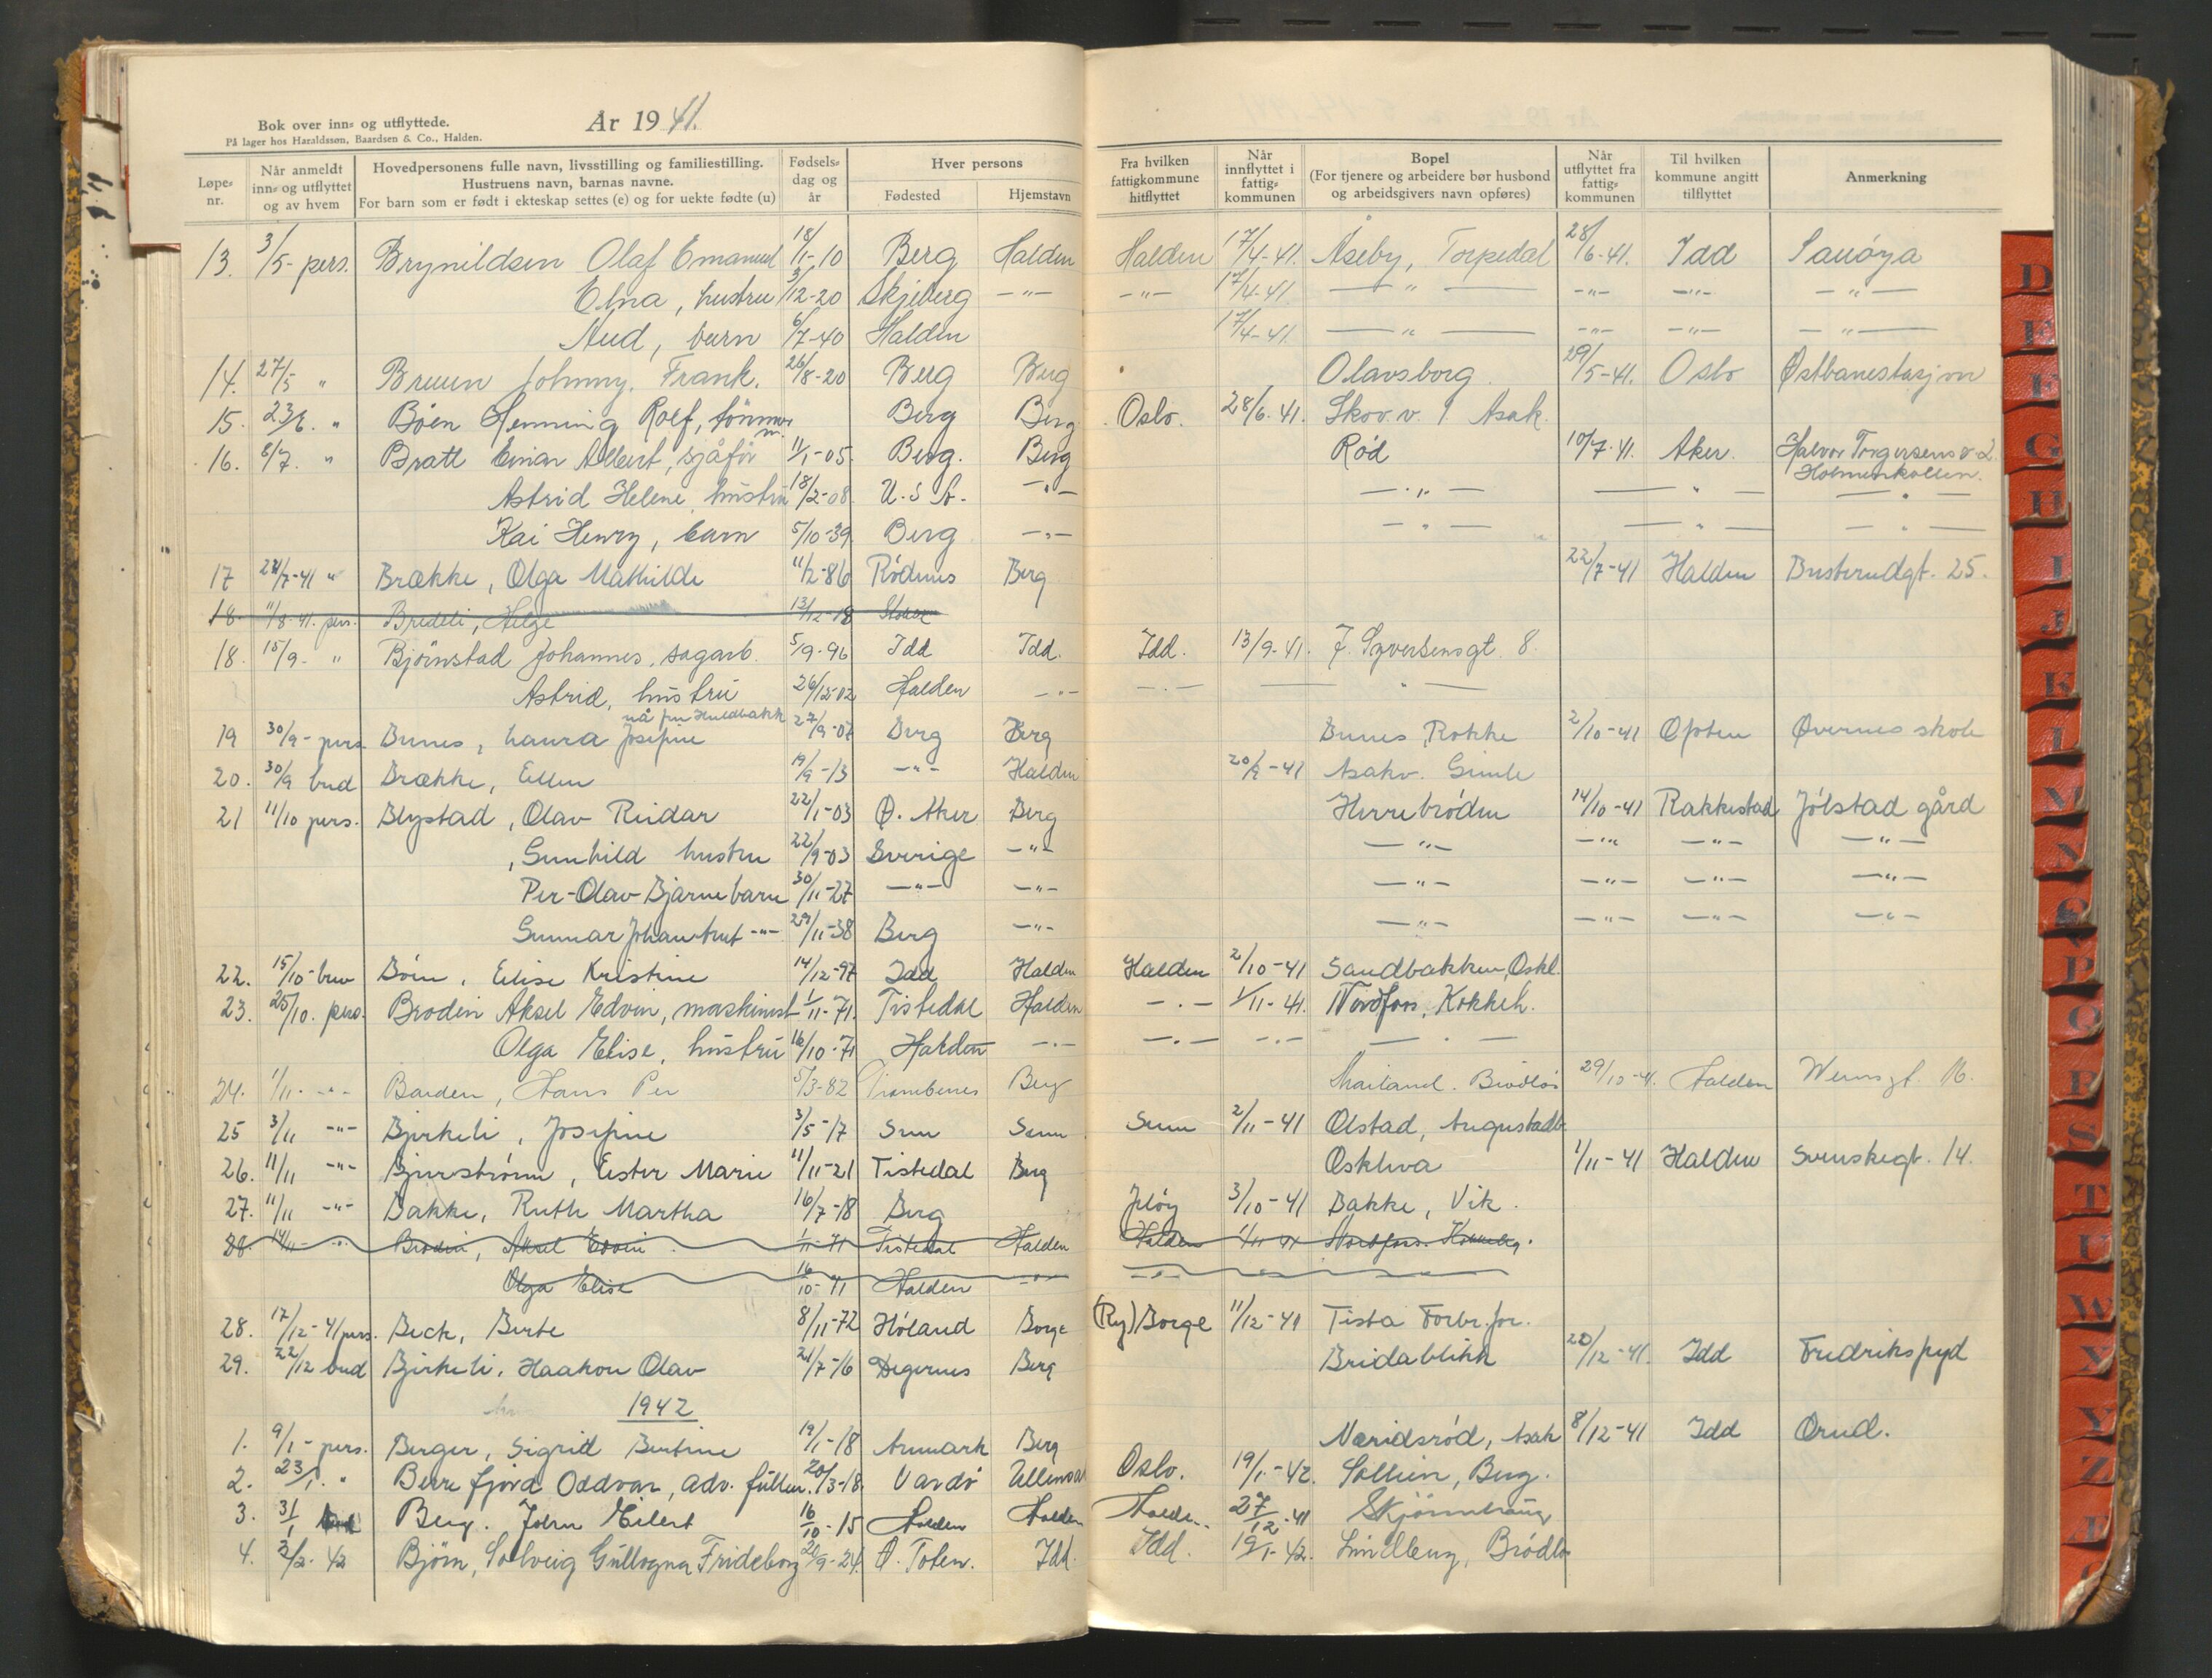 Bok over inn- og utflyttede. År 1941.
På lager hos Haraldssøn, Baardsen & Co., Halden.
Løpe-nr. | Når anmeldt inn- og utflyttet og av hvem | Hovedpersonens fulle navn, livsstilling og familiestilling. Hustruens navn, barnas navne. For barn som er født i ekteskap settes (e) og for uekte fødte (u) | Fødsels-dag og år | Hver persons Fødested | Hjemstavn | Fra hvilken fattigkommune hitflyttet | Når innflyttet i fattig-kommunen | Bopel (For tjenere og arbeidere bør husbond og arbeidsgivers navn opføres) | Når utflyttet fra fattig-kommunen | Til hvilken kommune angitt tilflyttet | Anmerkning
13. 3/5- pers. Brynildsen Olaf Emanuel 18/1-10 Berg Halden Halden 17/4-41. Åseby, Torpedal 28/6-41. Idd Sauøya
Elna, hustru 3/12-20 Skjeberg -"- -"- 17/4-41 -"- -"- -"- -"-
Aud, barn 6/7-40 Halden 17/4-41 -"- -"- -"- -"-
14. 27/5 " Bruun Johnny. Frank. 26/8-20 Berg Berg Olavsborg 29/5-41. Oslo Østbanestasjon
15. 23/6. " Böen Henning Rolf, tömmer m. Berg Berg. Oslo. 28/6.41. Skov. v. 1 Asak.
16. 8/7. " Bratt Einar Albert, sjåför 11/1-05. Berg. Berg Rød 10/7.41. Aker. Halvor Torgersens v. 2 Holmenkollen.
Astrid Helene, hustru 18/2-08. U.S.A. -"- -"- -"- -"-
Kai Henry, barn 5/10-39 Berg -"- -"- -"- -"-
17 22/7-41 " Brække, Olga Mathilde 11/2-86 Rødenes Berg 22/7-41 Halden Busterudgt. 25.
18. 11/8.41. pers. Bredeli, Helge 13/12-18
18. 15/9- " Bjørnstad Johannes, sagarb. 5/9-96 Idd Idd. Idd. 13/9-41. J. Syversensgt. 8.
Astrid, hustru 26/12-02 Halden -"- -"- -"-
nå fru Huldbakk
19 30/9- pers Bunes, Laura Josefine 27/9-07 Berg Berg Bunes, Rokke 2/10-41 Onsøy Øvernes skole
20. 30/9 bud Brække, Ellen 19/9-13 -"- Halden 20/9-41 Asakv. Gimle
21 11/10 pers. Blystad, Olav Reidar 22/1-03 Ø. Aker Berg Herrebrøden 14/10-41 Rakkestad Jölstad gård
, Gunhild hustru 22/9-03 Sverige -"- -"- -"- -"- -"-
Per-Olav-Bjarne barn 30/11-27 -"- -"- -"- -"- -"- -"-
Gunnar Johan Knut -"- 29/11-38 Berg -"- -"- -"- -"- -"-
22. 15/10-brev Böen, Elise Kristine 14/12-97 Idd Halden Halden 2/10-41 Sandbakken, Oskl.
23. 25/10. pers. Brodin Aksel Edvin, maskinist 1/11-71. Tistedal Halden -"- 1/11-41. Nordfoss, Kokkeh.
Olga Elise, hustru 16/10-71 Halden -"- -"- -"- -"-
24. 1/11. -"- Barden, Hans Per 5/3-82 Trømborg Berg Mailand. Brödlös 29/10-41. Halden Wernsgt. 16.
25 3/11 -"- Bjerkeli, Josefine 3/5-17 Svin Svin Svin 2/11-41 Olstad, Augustadb.
26. 11/11 -"- Bjurstrøm, Ester Marie 11/11-21 Tistedal Berg Oskleiva 1/11-41 Halden Svenskegt. 14.
27. 11/11 -"- Bakke, Ruth Martha 16/7-18 Berg Jeløy 3/10-41 Bakke, Vik.
28. 14/11 -"- Brodin, Aksel Edvin 1/11-71 Tistedal Halden Halden 1/11 41 Nordfoss. Kokkeh.
Olga Elise 16/10-71 Halden -"- -"-
28. 17/12-41 pers. Beck, Berte 8/11-72 Høland Borge (Ry) Borge 11/12-41 Tista Forbr.for.
29. 22/12 bud Bjerkeli, Haakon Olav 21/7-16 Degernes Berg Bridablikk 20/12-41. Idd Fredriksfryd
1942
1. 9/1- pers. Berger, Sigrid Bertine 19/1-18 Aremark Berg Næridsrød, Asak 8/12-41 Idd Ørud.
2. 23/1. " Berrefjord Oddvar, adv. fullm. 20/3-18. Vardö Ullensa Oslo. 19/1-42. Sollien, Berg.
3. 31/1 Berg. John Eilert 16/10-15 Halden Halden Halden 27/12-41 Skjønnhaug
4. 2/2-42 Bjørn, Solveig Gullogna Frideborg 20/9-24. Ø. Toten. Idd. Idd. 19/1-42. Lindberg, Brödlö
D E F G H I J K L M N O P Q R S T U W X Y Z Æ